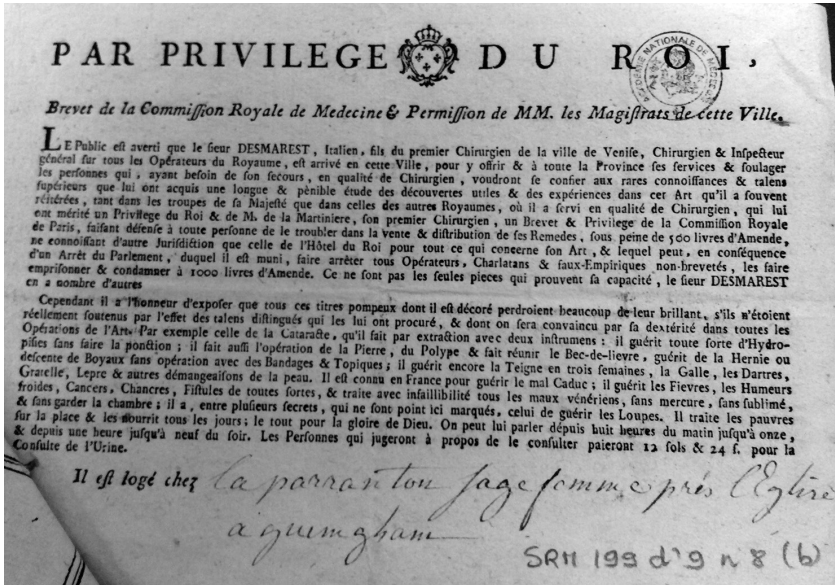 PAR PRIVILEGE DU ROI,
ACADÉMIE NATIONALE DE MÉDECINE
Brevet de la Commiſſion Royale de Medecine & Permiſſion de MM. les Magiſtrats de cette Ville.
LE Public eſt averti que le ſieur DESMAREST, Italien, fils du premier Chirurgien de la ville de Veniſe, Chirurgien & Inſpecteur
général ſur tous les Opérateurs du Royaume, eſt arrivé en cette Ville, pour y offrir & à toute la Province ſes ſervices & ſoulager
les perſonnes qui, ayant beſoin de ſon ſecours, en qualité de Chirurgien, voudront ſe confier aux rares connoiſſances & talens
ſupérieurs que lui ont acquis une longue & pénible étude des découvertes utiles & des expériences dans cet Art qu'il a ſouvent
réitérées, tant dans les troupes de ſa Majeſté que dans celles des autres Royaumes, où il a ſervi en qualité de Chirurgien, qui lui
ont mérité un Privilege du Roi & de M. de la Martiniere, ſon premier Chirurgien, un Brevet & Privilege de la Commiſſion Royale
de Paris, faiſant défenſe à toute perſonne de le troubler dans la vente & diſtribution de ſes Remedes, ſous peine de 500 livres d'Amende,
ne connoiſſant d'autre Juriſdiction que celle de l'Hôtel du Roi pour tout ce qui concerne ſon Art, & lequel peut, en conſéquence
d'un Arrêt du Parlement, duquel il eſt muni, faire arrêter tous Opérateurs, Charlatans & faux-Empiriques non-brevetés, les faire
empriſonner & condamner à 1000 livres d'Amende. Ce ne ſont pas les ſeules pieces qui prouvent ſa capacité, le ſieur DESMAREST
en a nombre d'autres
Cependant il a l'honneur d'expoſer que tous ces titres pompeux dont il eſt décoré perdroient beaucoup de leur brillant, s'ils n'étoient
réellement ſoutenus par l'effet des talens diſtingués qui les lui ont procuré, & dont on ſera convaincu par ſa dextérité dans toutes les
Opérations de l'Art. Par exemple celle de la Cataracte, qu'il fait par extraction avec deux inſtrumens : il guérit toute ſorte d'Hydro-
piſies ſans faire la ponction ; il fait auſſi l'opération de la Pierre, du Polype & fait réunir le Bec-de-lievre, guérit de la Hernie ou
deſcente de Boyaux ſans opération avec des Bandages & Topiques ; il guérit encore la Teigne en trois ſemaines, la Galle, les Dartres,
Gratelle, Lepre & autres démangeaiſons de la peau. Il eſt connu en France pour guérir le mal Caduc ; il guérit les Fievres, les Humeurs
froides, Cancers, Chancres, Fiſtules de toutes ſortes, & traite avec infaillibilité tous les maux vénériens, ſans mercure, ſans ſublimé,
& ſans garder la chambre ; il a, entre pluſieurs ſecrets, qui ne ſont point ici marqués, celui de guérir les Loupes. Il traite les pauvres
ſur la place & les nourrit tous les jours ; le tout pour la gloire de Dieu. On peut lui parler dépuis huit heures du matin juſqu'à onze,
& depuis une heure juſqu'à neuf du ſoir. Les Perſonnes qui jugeront à propos de le conſulter paieront 12 ſols & 24 ſ. pour la
Conſulte de l'Urine.
Il eſt logé chez la parranton ſage femme prés l'Egliſe
a guemgham
SRM 199 d'9 n 8 (b)